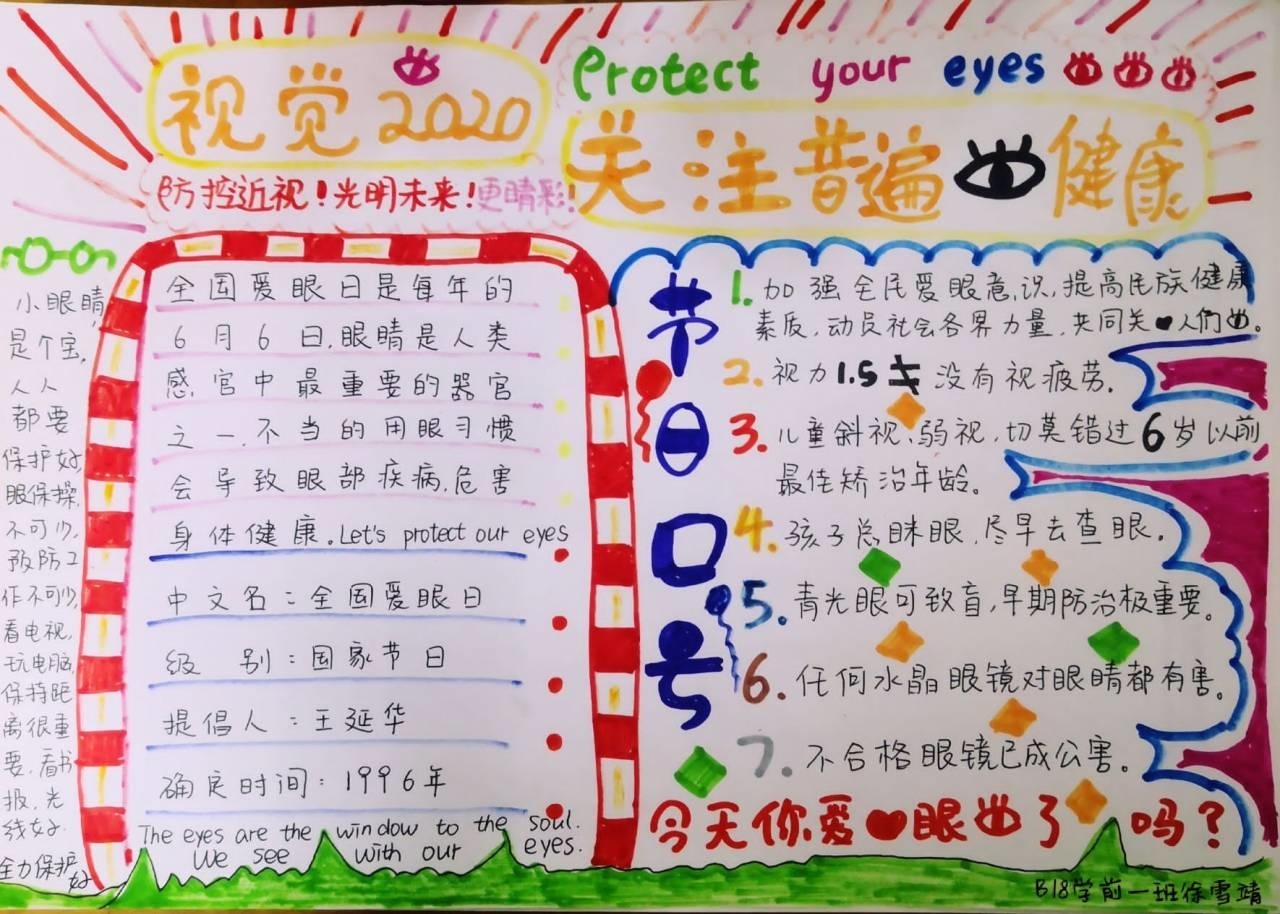 视觉2020
Protect your eyes
关注普遍健康
防控近视！光明未来！更睛彩！
小眼睛，
是个宝，
人人
都要
保护好，
眼保操，
不可少，
预防工
作不可少，
看电视，
玩电脑，
保持距
离很重
要，看书
报，光
线好，
全力保护
好
全国爱眼日是每年的
6月6日，眼睛是人类
感官中最重要的器官
之一，不当的用眼习惯
会导致眼部疾病，危害
身体健康。Let's protect our eyes
中文名：全国爱眼日
级 别：国家节日
提倡人：王延华
确定时间：1996年
The eyes are the window to the soul.
We see with our eyes.
节日口号
1. 加强全民爱眼意识，提高民族健康
素质，动员社会各界力量，共同关❤人们。
2. 视力1.5 没有视疲劳。
3. 儿童斜视、弱视，切莫错过6岁以前
最佳矫治年龄。
4. 孩子总眯眼，尽早去查眼。
5. 青光眼可致盲，早期防治极重要。
6. 任何水晶眼镜对眼睛都有害。
7. 不合格眼镜已成公害。
今天你爱❤眼了吗？
B18学前一班徐雪靖